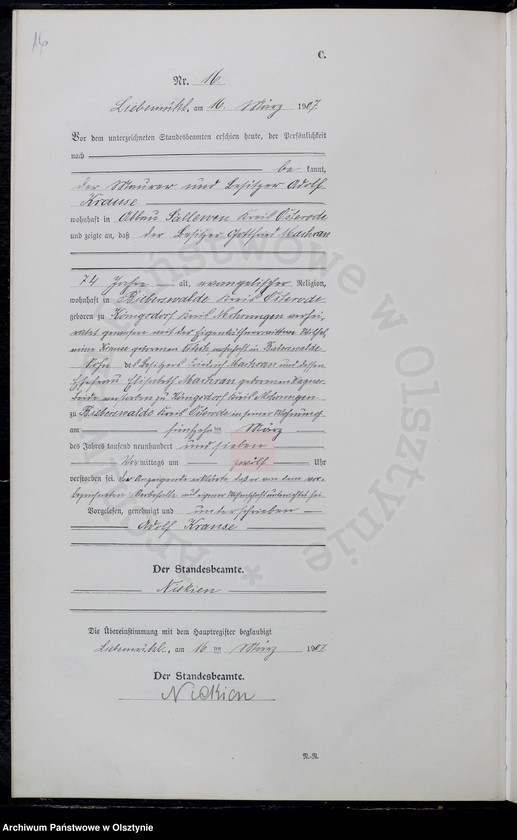 16
C.
Nr. 16.
Liebemühl, am 16. März 1907.
Vor dem unterzeichneten Standesbeamten erschien heute, der Persönlichkeit
nach
be kannt,
der Maurer und Besitzer Adolf
Krause
wohnhaft in Abbau Sallewen Kreis Osterode
und zeigte an, daß der Besitzer Gottfried Machran
74 Jahre alt, evangelischer Religion,
wohnhaft in Bieberswalde Kreis Osterode
geboren zu Königsdorf Kreis Mohrungen verhei-
ratet gewesen mit der Eigenkäthnerwittwe Wilhel-
mine Krause geborenen wohnhaft in Bieberswalde
Sohn des Besitzers Machran und dessen
Ehefrau Elisabeth Machran geborenen Wagner
beide verstorben zu Königsdorf Kreis Mohrungen
zu Bieberswalde Kreis Osterode in seiner Wohnung
am fünfzehnten März
des Jahres tausend neunhundert und sieben
Vormittags um zwölf Uhr
verstorben sei. Der Anzeigende erklärte, daß er von dem vor-
bezeichneten Sterbefalle aus eigener Wissenschaft unterrichtet sei.
Vorgelesen, genehmigt und unterschrieben
Adolf Krause
Der Standesbeamte.
Nickien
Die Übereinstimmung mit dem Hauptregister beglaubigt
Liebemühl, am 16 ten März 1907.
Der Standesbeamte.
Nickien
N.-R.
Archiwum Państwowe w Olsztynie
* Archiwum Państwowe w Olsztynie